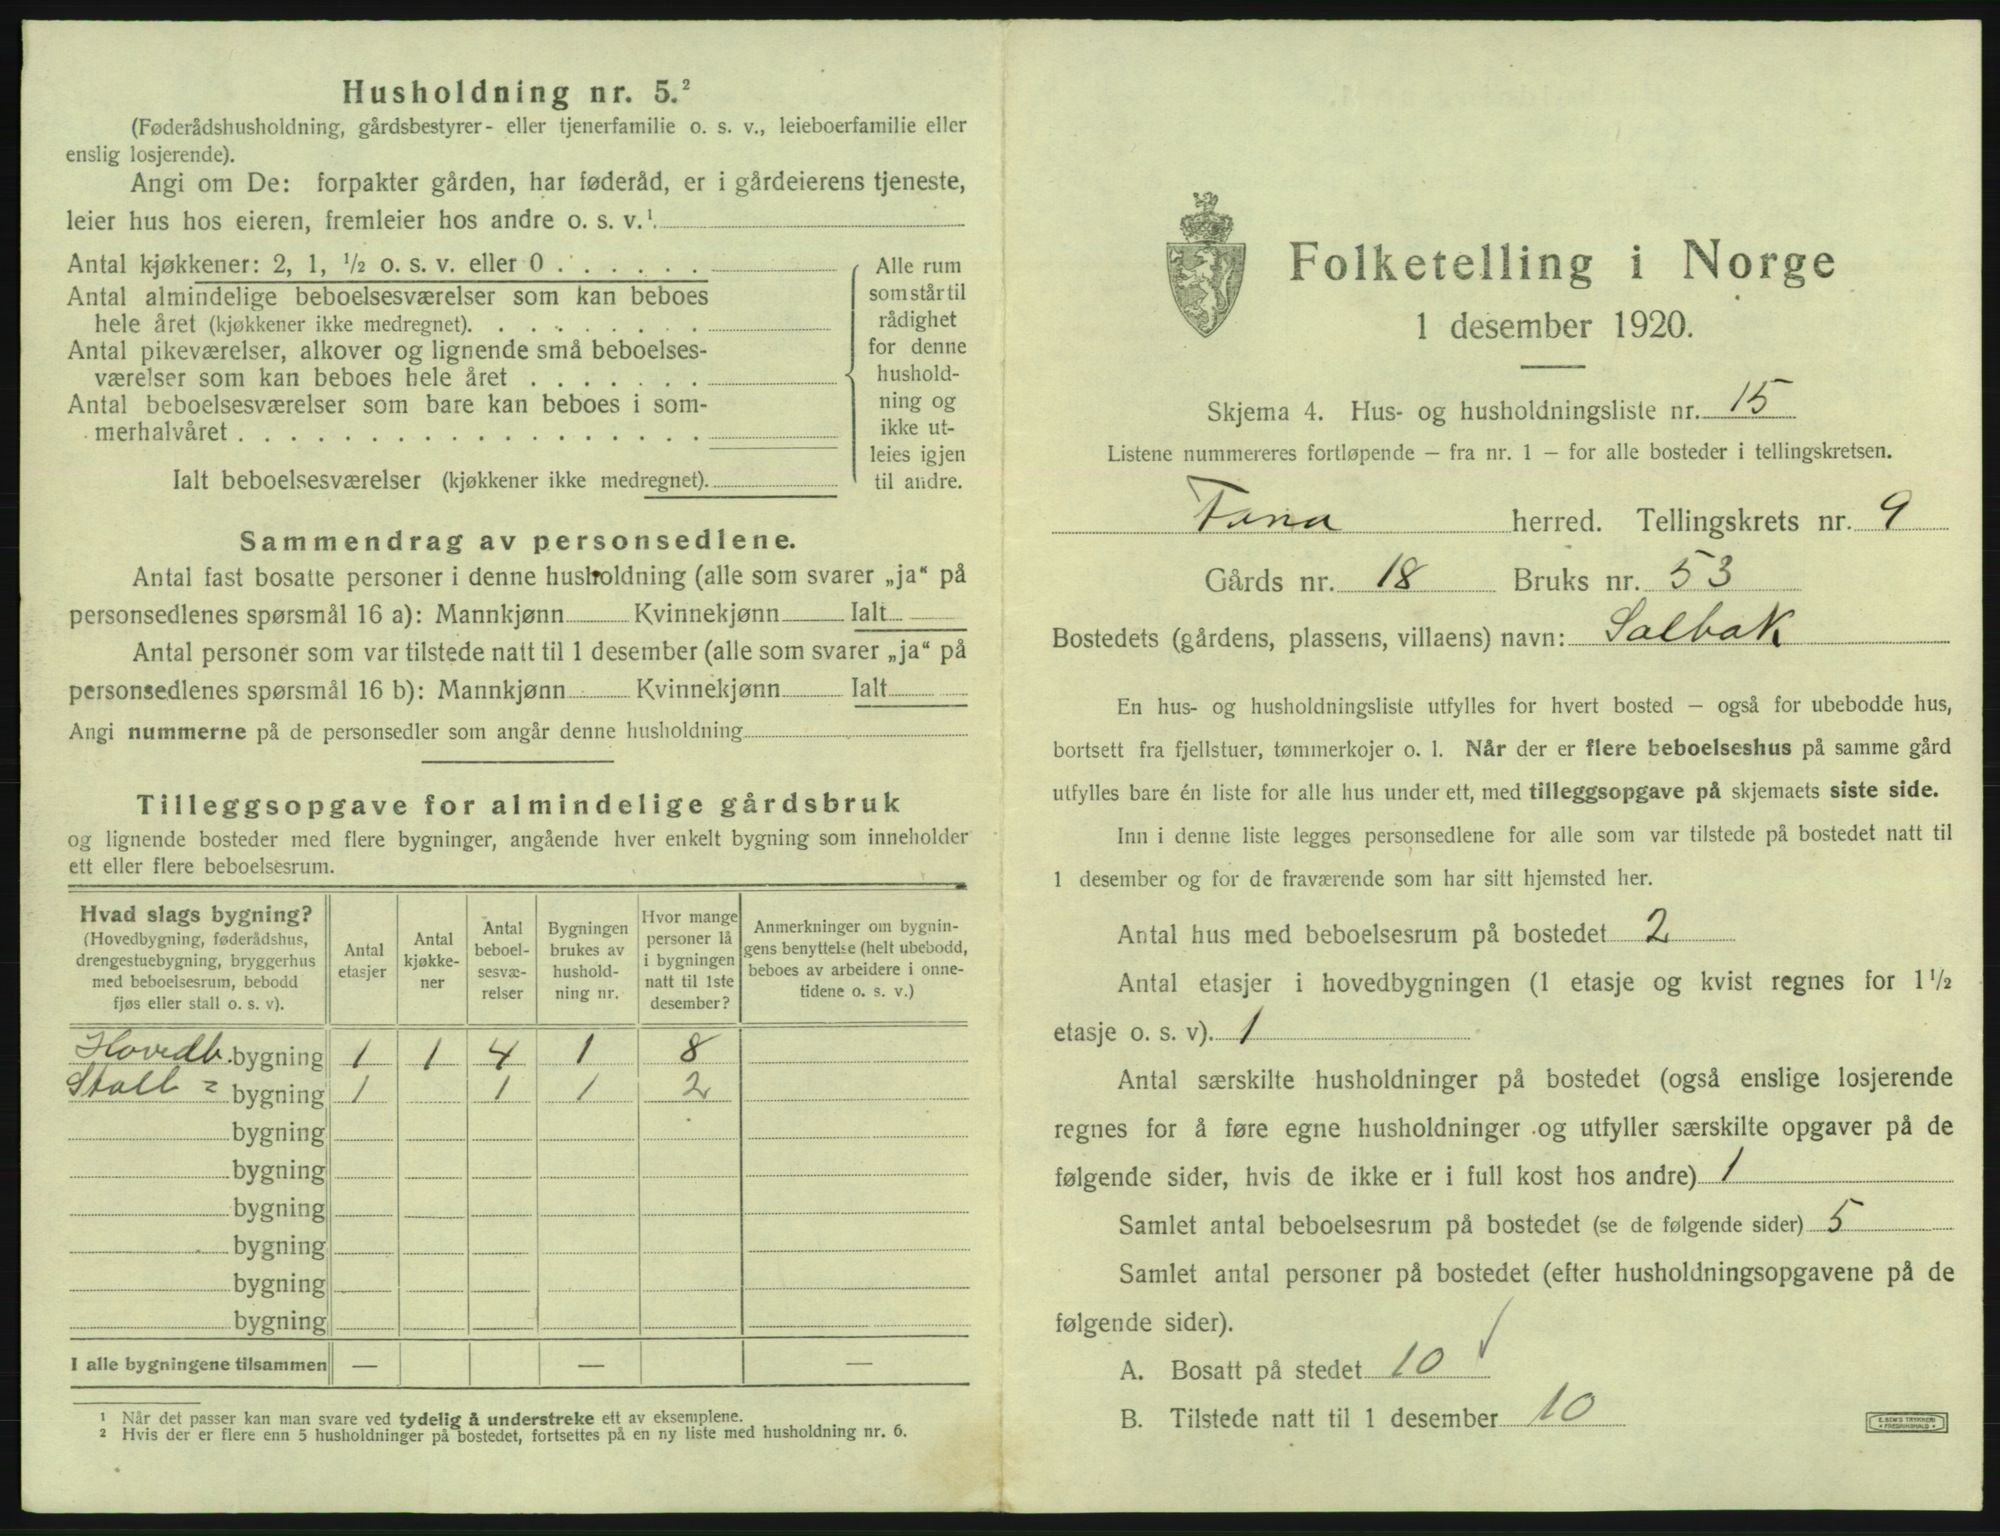 Husholdning nr. 5.²
(Føderådshusholdning, gårdsbestyrer- eller tjenerfamilie o. s. v., leieboerfamilie eller
enslig losjerende).
Angi om De: forpakter gården, har føderåd, er i gårdeierens tjeneste,
leier hus hos eieren, fremleier hos andre o. s. v.¹
Antal kjøkkener: 2, 1, ½ o. s. v. eller 0 . . . . . .
Antal almindelige beboelsesværelser som kan beboes
hele året (kjøkkener ikke medregnet). . . . . . . . .
Antal pikeværelser, alkover og lignende små beboelses-
værelser som kan beboes hele året . . . . . . .
Antal beboelsesværelser som bare kan beboes i som-
merhalvåret . . . . . . . . . . . . . . . . . .
Ialt beboelsesværelser (kjøkkener ikke medregnet).
Alle rum
som står til
rådighet
for denne
hushold-
ning og
ikke ut-
leies igjen
til andre.
Sammendrag av personsedlene.
Antal fast bosatte personer i denne husholdning (alle som svarer „ja“ på
personsedlenes spørsmål 16 a): Mannkjønn Kvinnekjønn Ialt
Antal personer som var tilstede natt til 1 desember (alle som svarer „ja“ på
personsedlenes spørsmål 16 b): Mannkjønn Kvinnekjønn Ialt
Angi nummerne på de personsedler som angår denne husholdning
Tilleggsopgave for almindelige gårdsbruk
og lignende bosteder med flere bygninger, angående hver enkelt bygning som inneholder
ett eller flere beboelsesrum.
Hvad slags bygning?
(Hovedbygning, føderådshus,
drengestuebygning, bryggerhus
med beboelsesrum, bebodd
fjøs eller stall o. s. v).
Antal
etasjer
Antal
kjøkke-
ner
Antal
beboel-
sesvæ-
relser
Bygningen
brukes av
hushold-
ning nr.
Hvor mange
personer lå
i bygningen
natt til 1ste
desember?
Anmerkninger om bygnin-
gens benyttelse (helt ubebodd,
beboes av arbeidere i onne-
tidene o. s. v.)
Hovedb. bygning 1 1 4 1 8
Stall = bygning 1 1 1 2
bygning
bygning
bygning
bygning
bygning
bygning
I alle bygningene tilsammen — — —
¹ Når det passer kan man svare ved tydelig å understreke ett av eksemplene.
² Hvis der er flere enn 5 husholdninger på bostedet, fortsettes på en ny liste med husholdning nr. 6.
Folketelling i Norge
1 desember 1920.
Skjema 4. Hus- og husholdningsliste nr. 15
Listene nummereres fortløpende — fra nr. 1 — for alle bosteder i tellingskretsen.
Fana herred. Tellingskrets nr. 9
Gårds nr. 18 Bruks nr. 53
Bostedets (gårdens, plassens, villaens) navn: Solbak
En hus- og husholdningsliste utfylles for hvert bosted — også for ubebodde hus,
bortsett fra fjellstuer, tømmerkojer o. l. Når der er flere beboelseshus på samme gård
utfylles bare én liste for alle hus under ett, med tilleggsopgave på skjemaets siste side.
Inn i denne liste legges personsedlene for alle som var tilstede på bostedet natt til
1 desember og for de fraværende som har sitt hjemsted her.
Antal hus med beboelsesrum på bostedet 2
Antal etasjer i hovedbygningen (1 etasje og kvist regnes for 1½
etasje o. s. v). 1
Antal særskilte husholdninger på bostedet (også enslige losjerende
regnes for å føre egne husholdninger og utfyller særskilte opgaver på de
følgende sider, hvis de ikke er i full kost hos andre) 1
Samlet antal beboelsesrum på bostedet (se de følgende sider) 5
Samlet antal personer på bostedet (efter husholdningsopgavene på de
følgende sider).
A. Bosatt på stedet 10 ✓
B. Tilstede natt til 1 desember 10
E. SEM'S TRYKKERI
FREDRIKSHALD